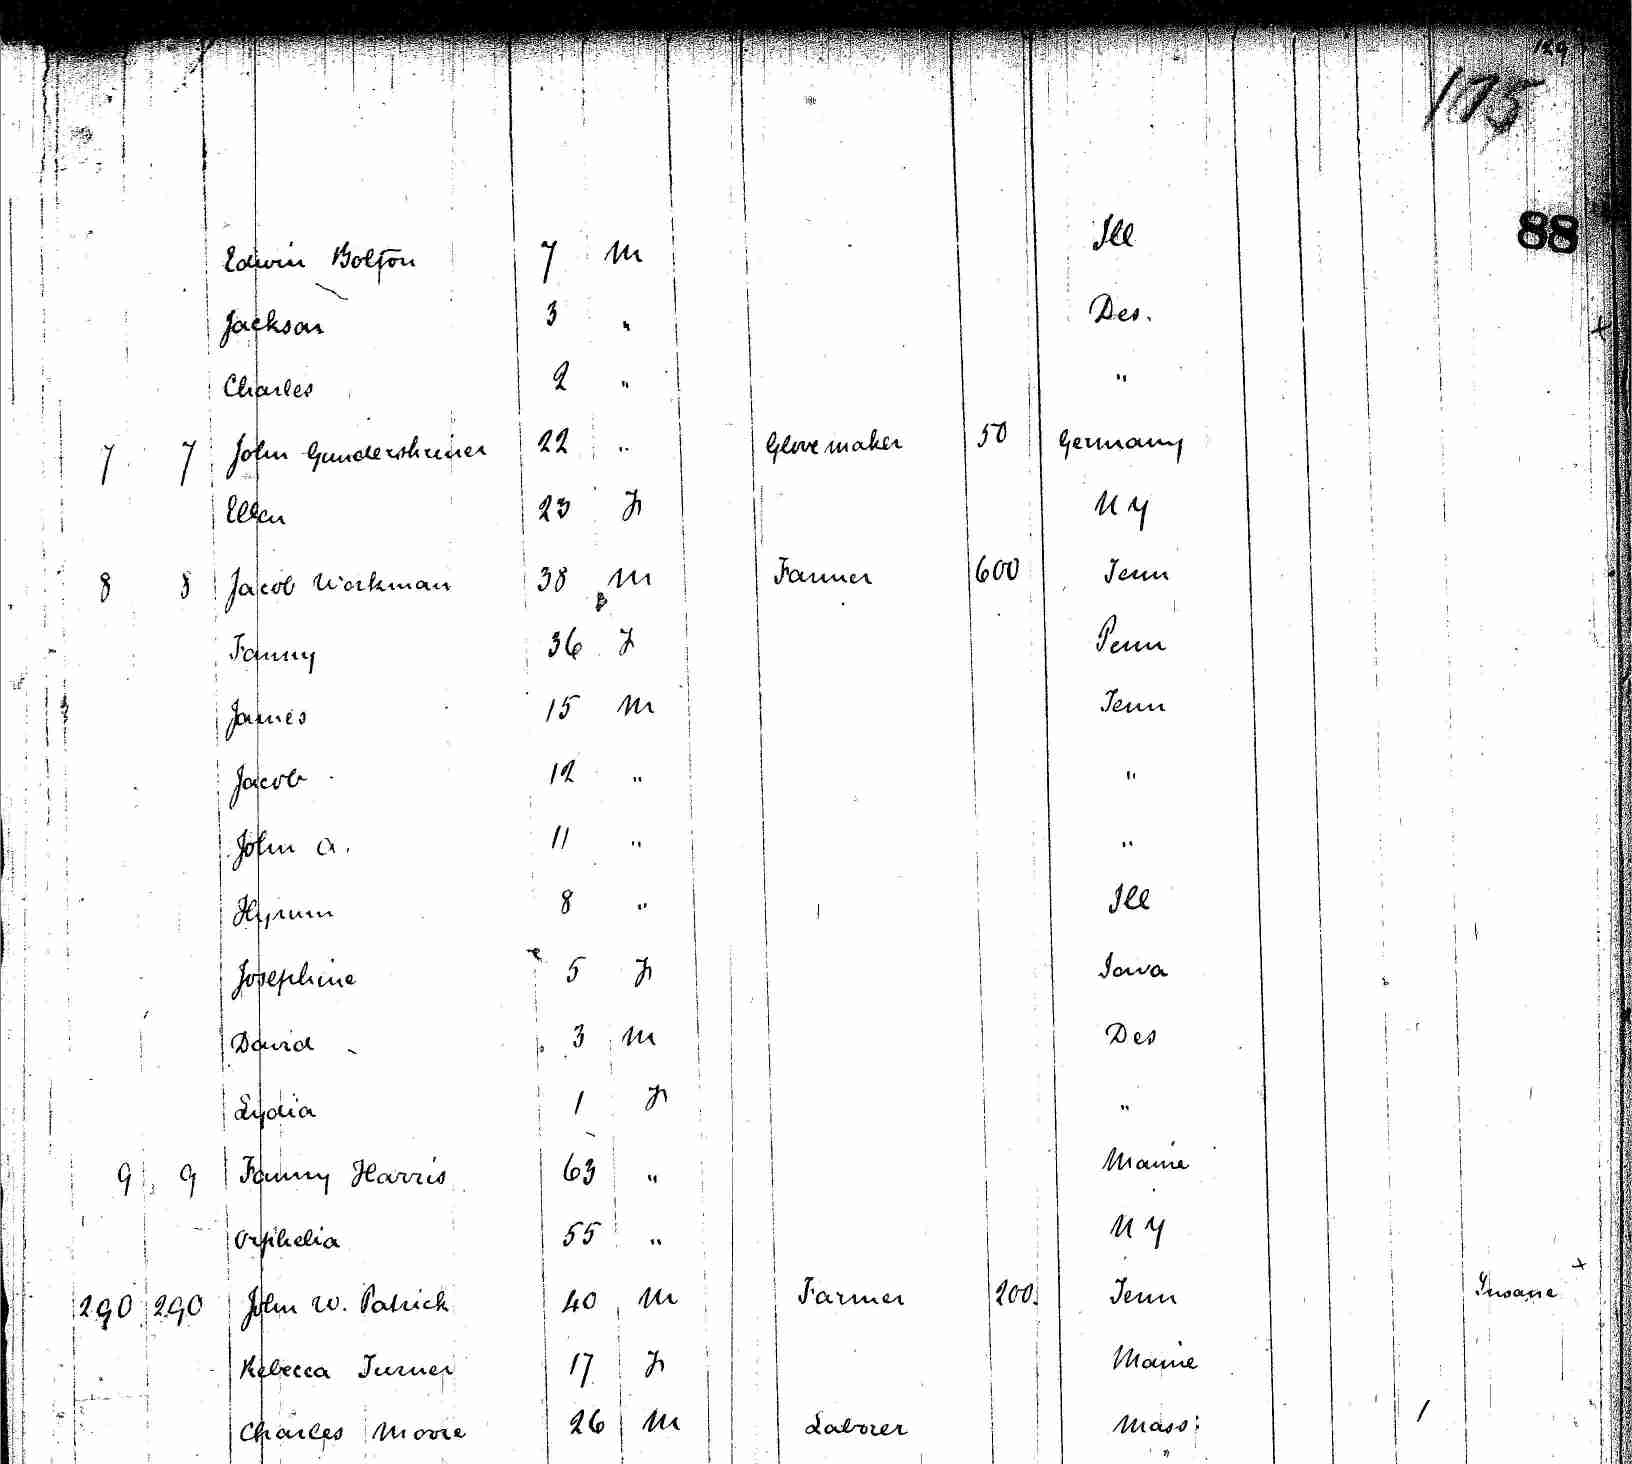 129
175
88
Edwin Bolton 7 M Ill
Jackson 3 " Des.
Charles 2 " "
7 7 John 22 " Glove maker 50 Germany
Ellen 23 F N Y
8 8 Jacob Workman 38 M Farmer 600 Tenn
Fanny 36 F Penn
James 15 M Tenn
Jacob 12 " "
John A. 11 " "
Hyrum 8 " Ill
Josephine 5 F Iowa
David 3 M Des
Lydia 1 F "
9 9 Fanny Harris 63 " Maine
Orphelia 55 " N Y
290 290 John W. Patrick 40 M Farmer 200. Tenn Insane
Rebecca Turner 17 F Maine
Charles Moore 26 M Laborer Mass: 1